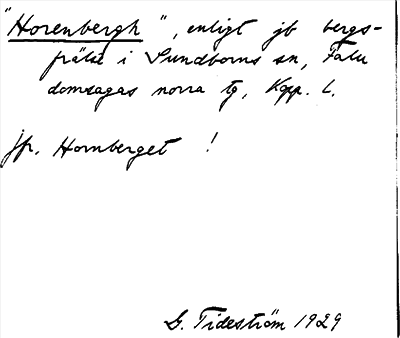 "Horenbergh", enligt jb bergs-
frälse i Sundborns sn, Falu
domsagas norra tg, Kopp. l.
Jfr. Hornberget !
G. Tideström 1929